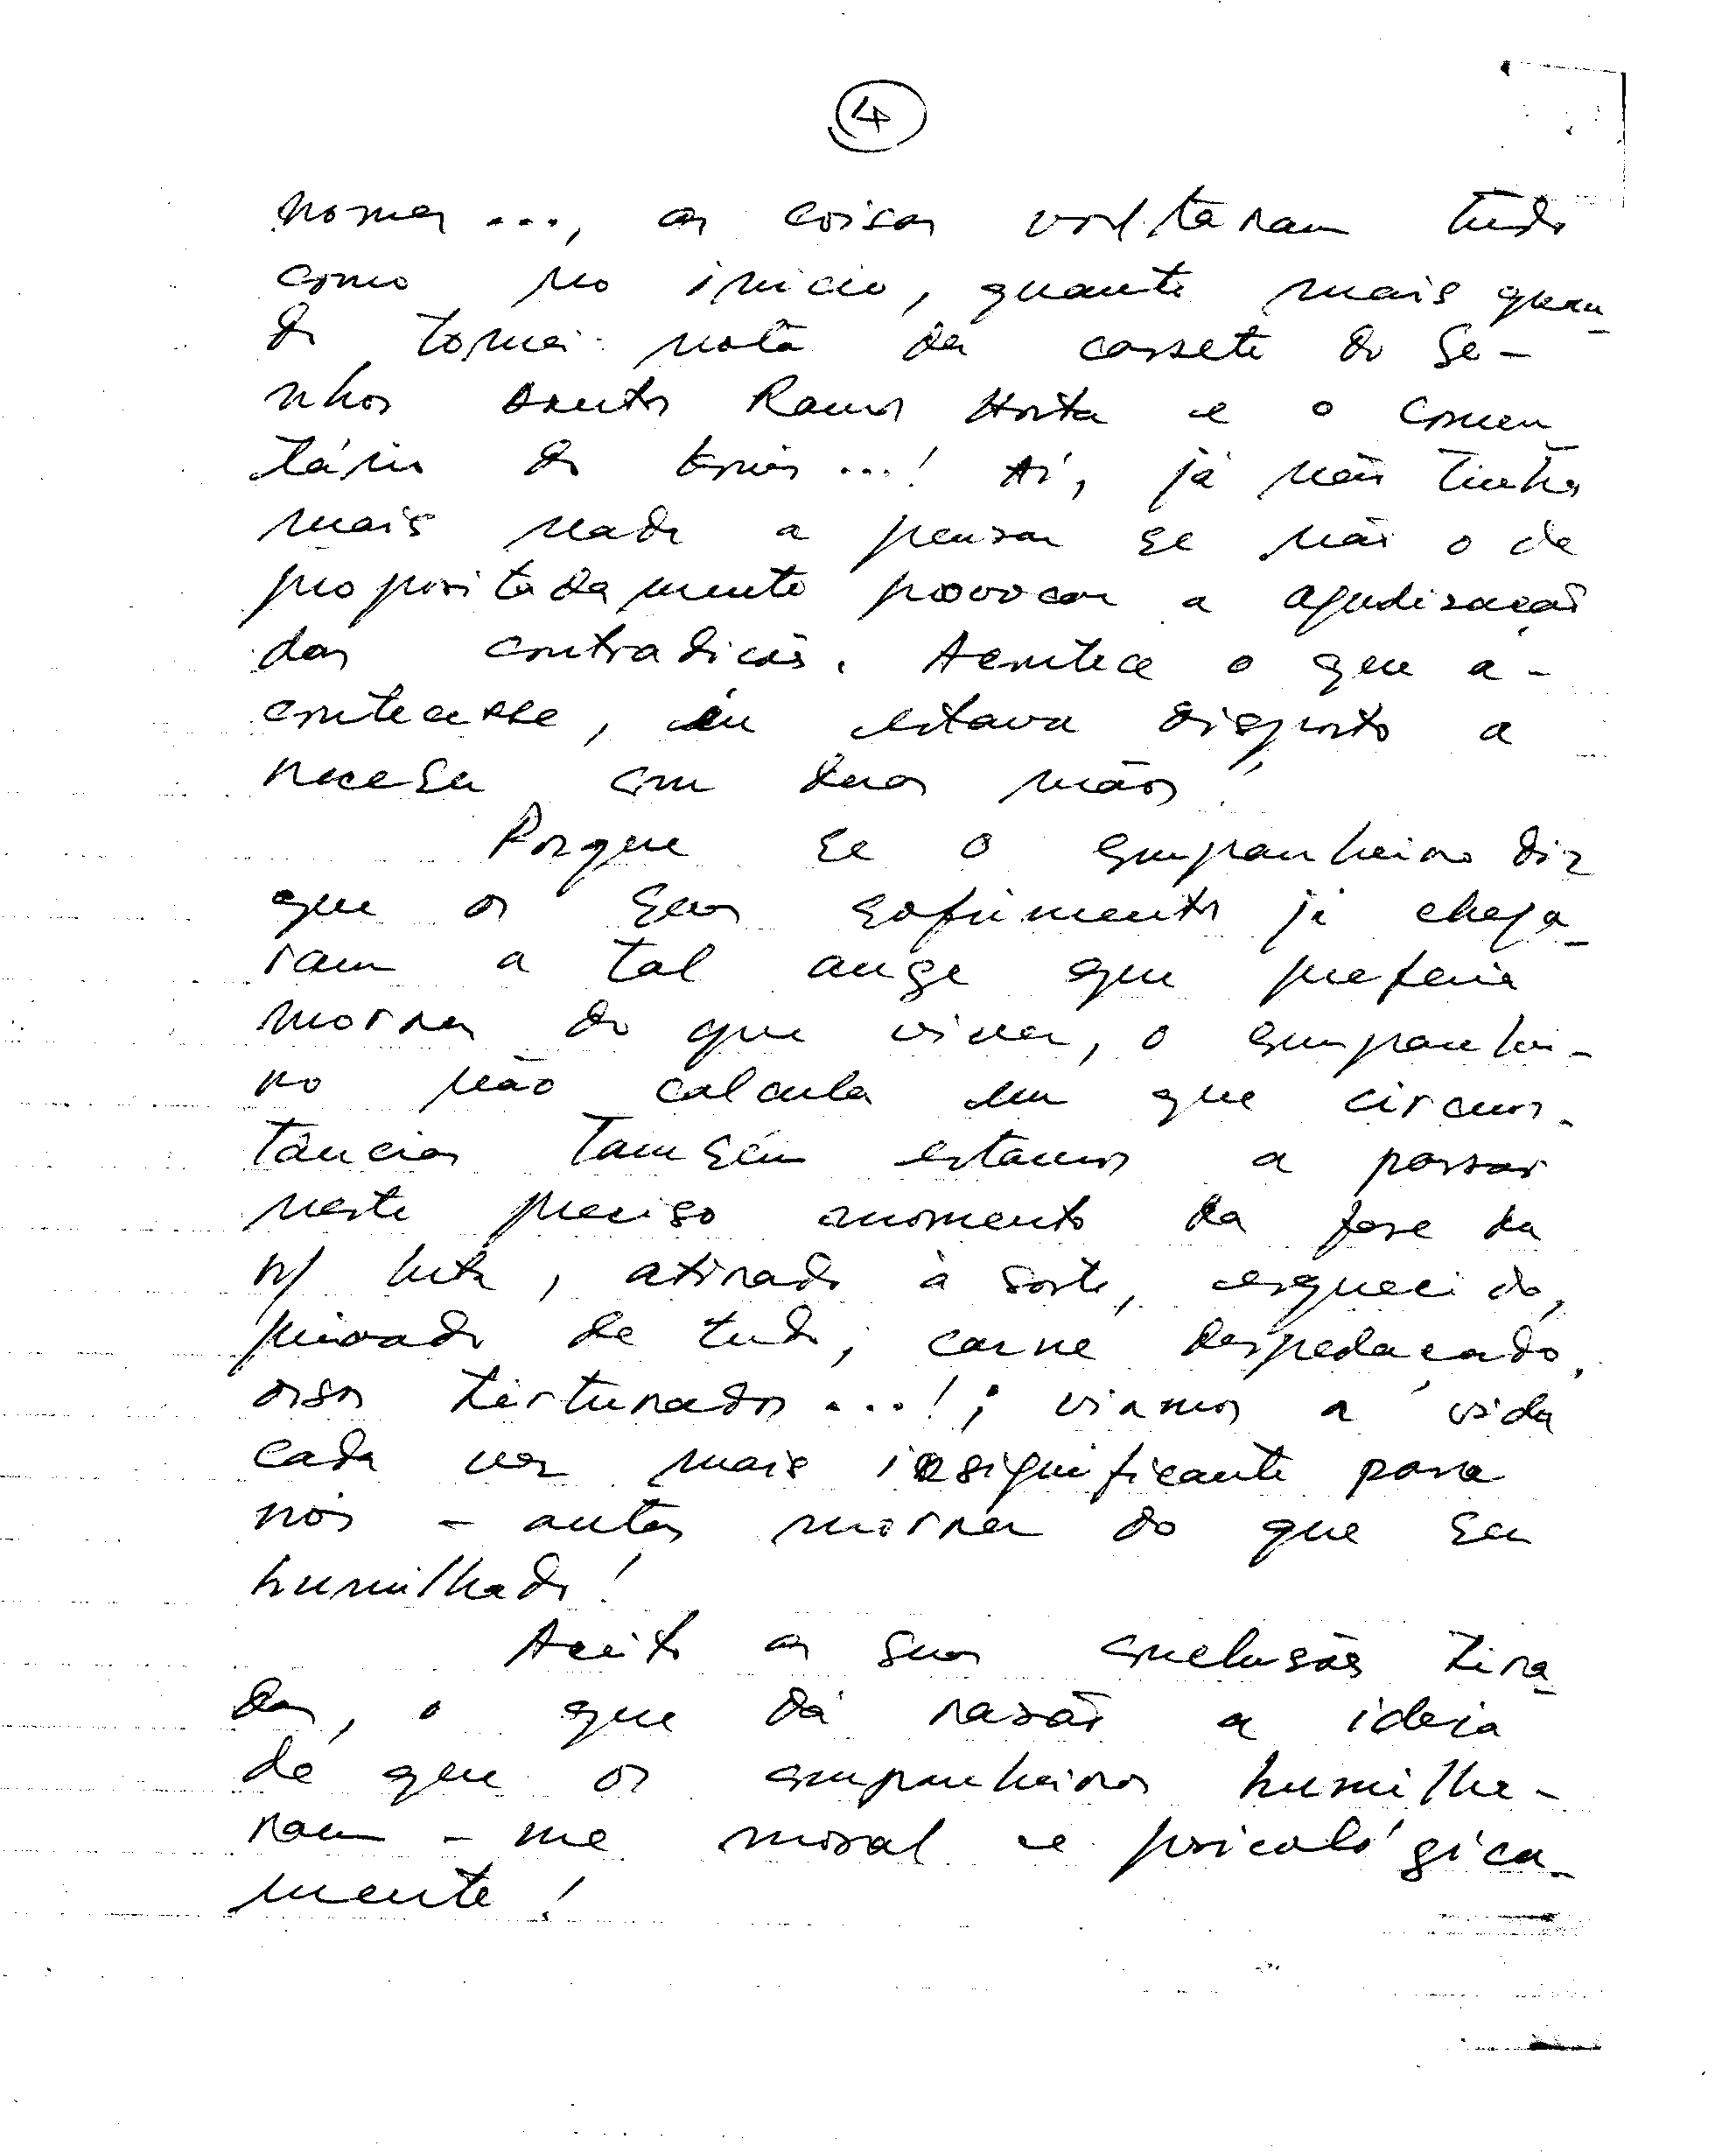 4
nomes ..., as coisas voltaram tudo
como no início, quanto mais quan_
do tomei nota da cassete do Se-
nhor Doutor Ramos Horta e o comen_
tário do ...! Aí, já não tinha
mais nada a pensar se não o de
propositadamente provocar a agudização
das contradicões. Acontece o que a-
contecesse, eu estava disposto a
receber com duas mãos!
Porque se o companheiro diz
que os seus sofrimentos já chega_
ram a tal auge que preferia
morrer do que viver, o companhei-
ro não calcula em que circuns-
tâncias também estamos a passar
neste preciso momento da fase da
n/ luta, atirado à sorte, esquecido,
privado de tudo; carne despedaçado,
ossos torturados ...!; viamos a vida
cada vez mais insignificante para
nós - antes morrer do que ser
humilhado!
Aceito as suas conclusões tira_
das, o que dá razão a ideia
de que os companheiros humilha-
ram-me moral e psicológica_
mente!